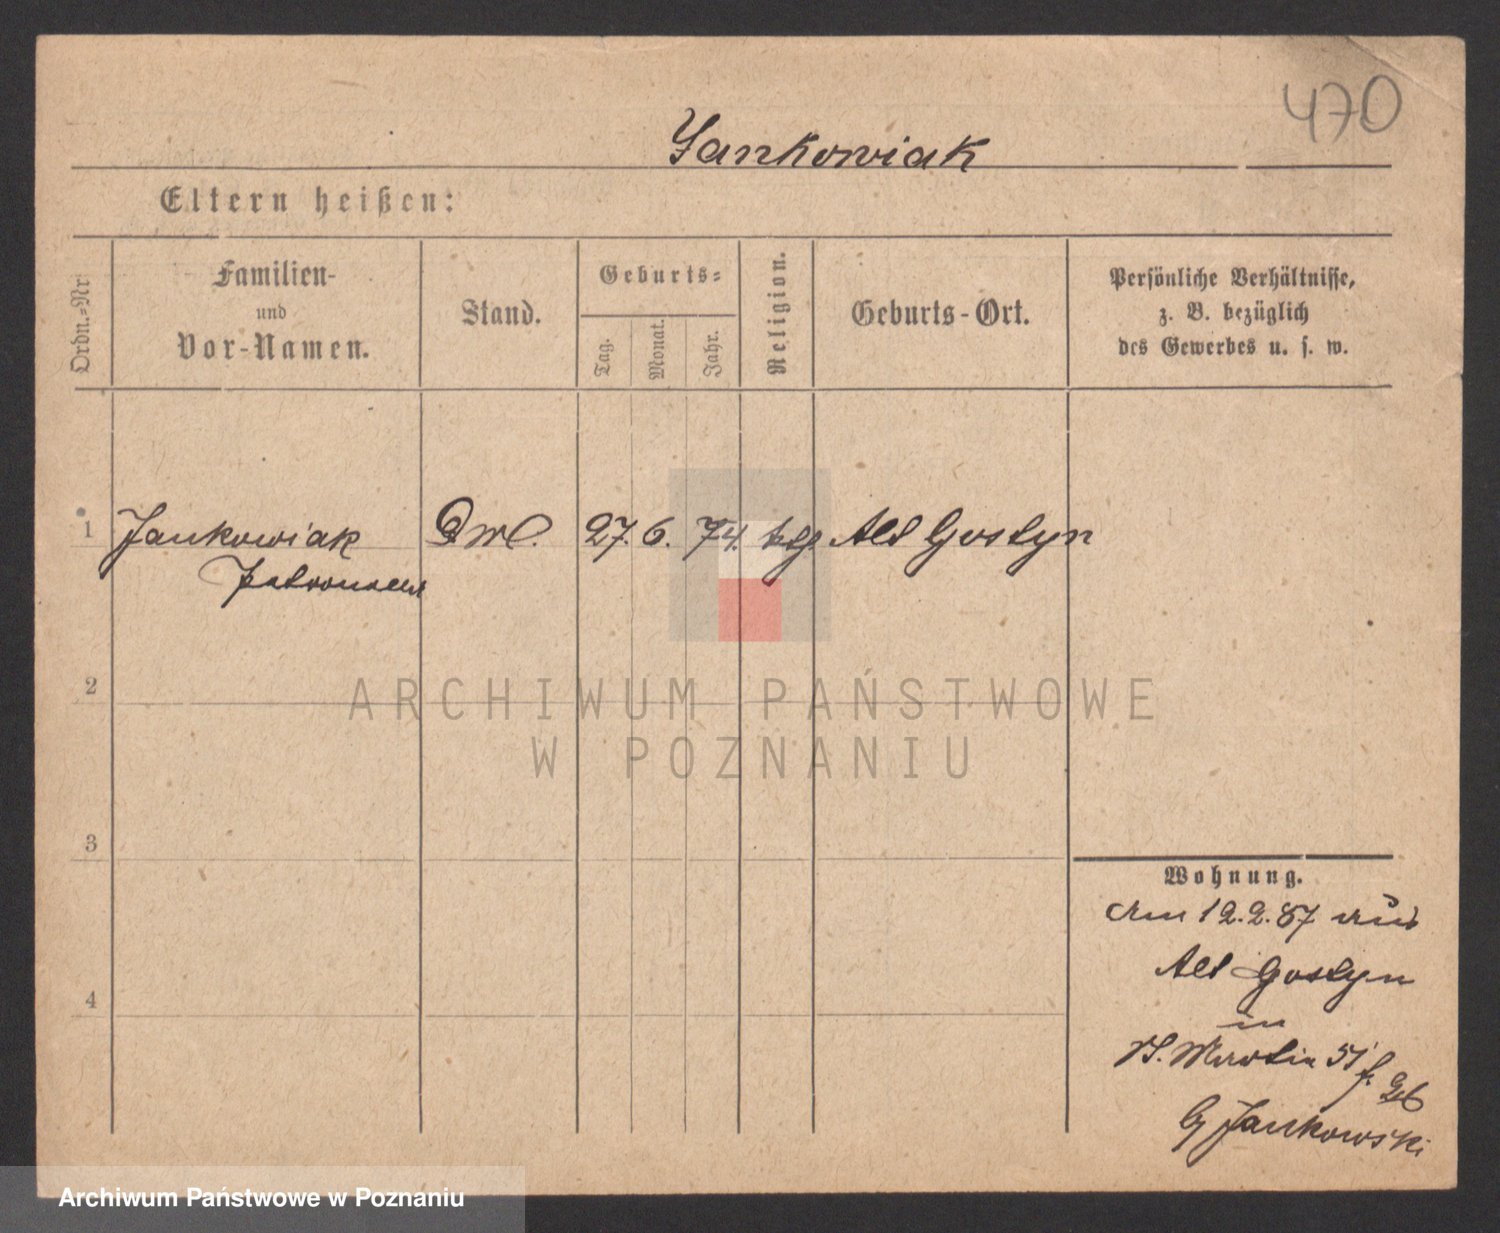 470
Jankowiak
Eltern heißen:
Ordn.-Nr.
Familien-
und
Vor-Namen.
Stand.
Geburts-
Tag.
Monat.
Jahr.
Religion.
Geburts-Ort.
Persönliche Verhältnisse,
z. B. bezüglich
des Gewerbes u. s. w.
1 Jankowiak 27. 6. 74. ktg Alt Gostyn
2
3
4
ARCHIWUM PAŃSTWOWE
W POZNANIU
Wohnung.
Am 12.2.87 aus
Alt Gostyn
in
St. Martin 51
b/ Jankowski
Archiwum Państwowe w Poznaniu